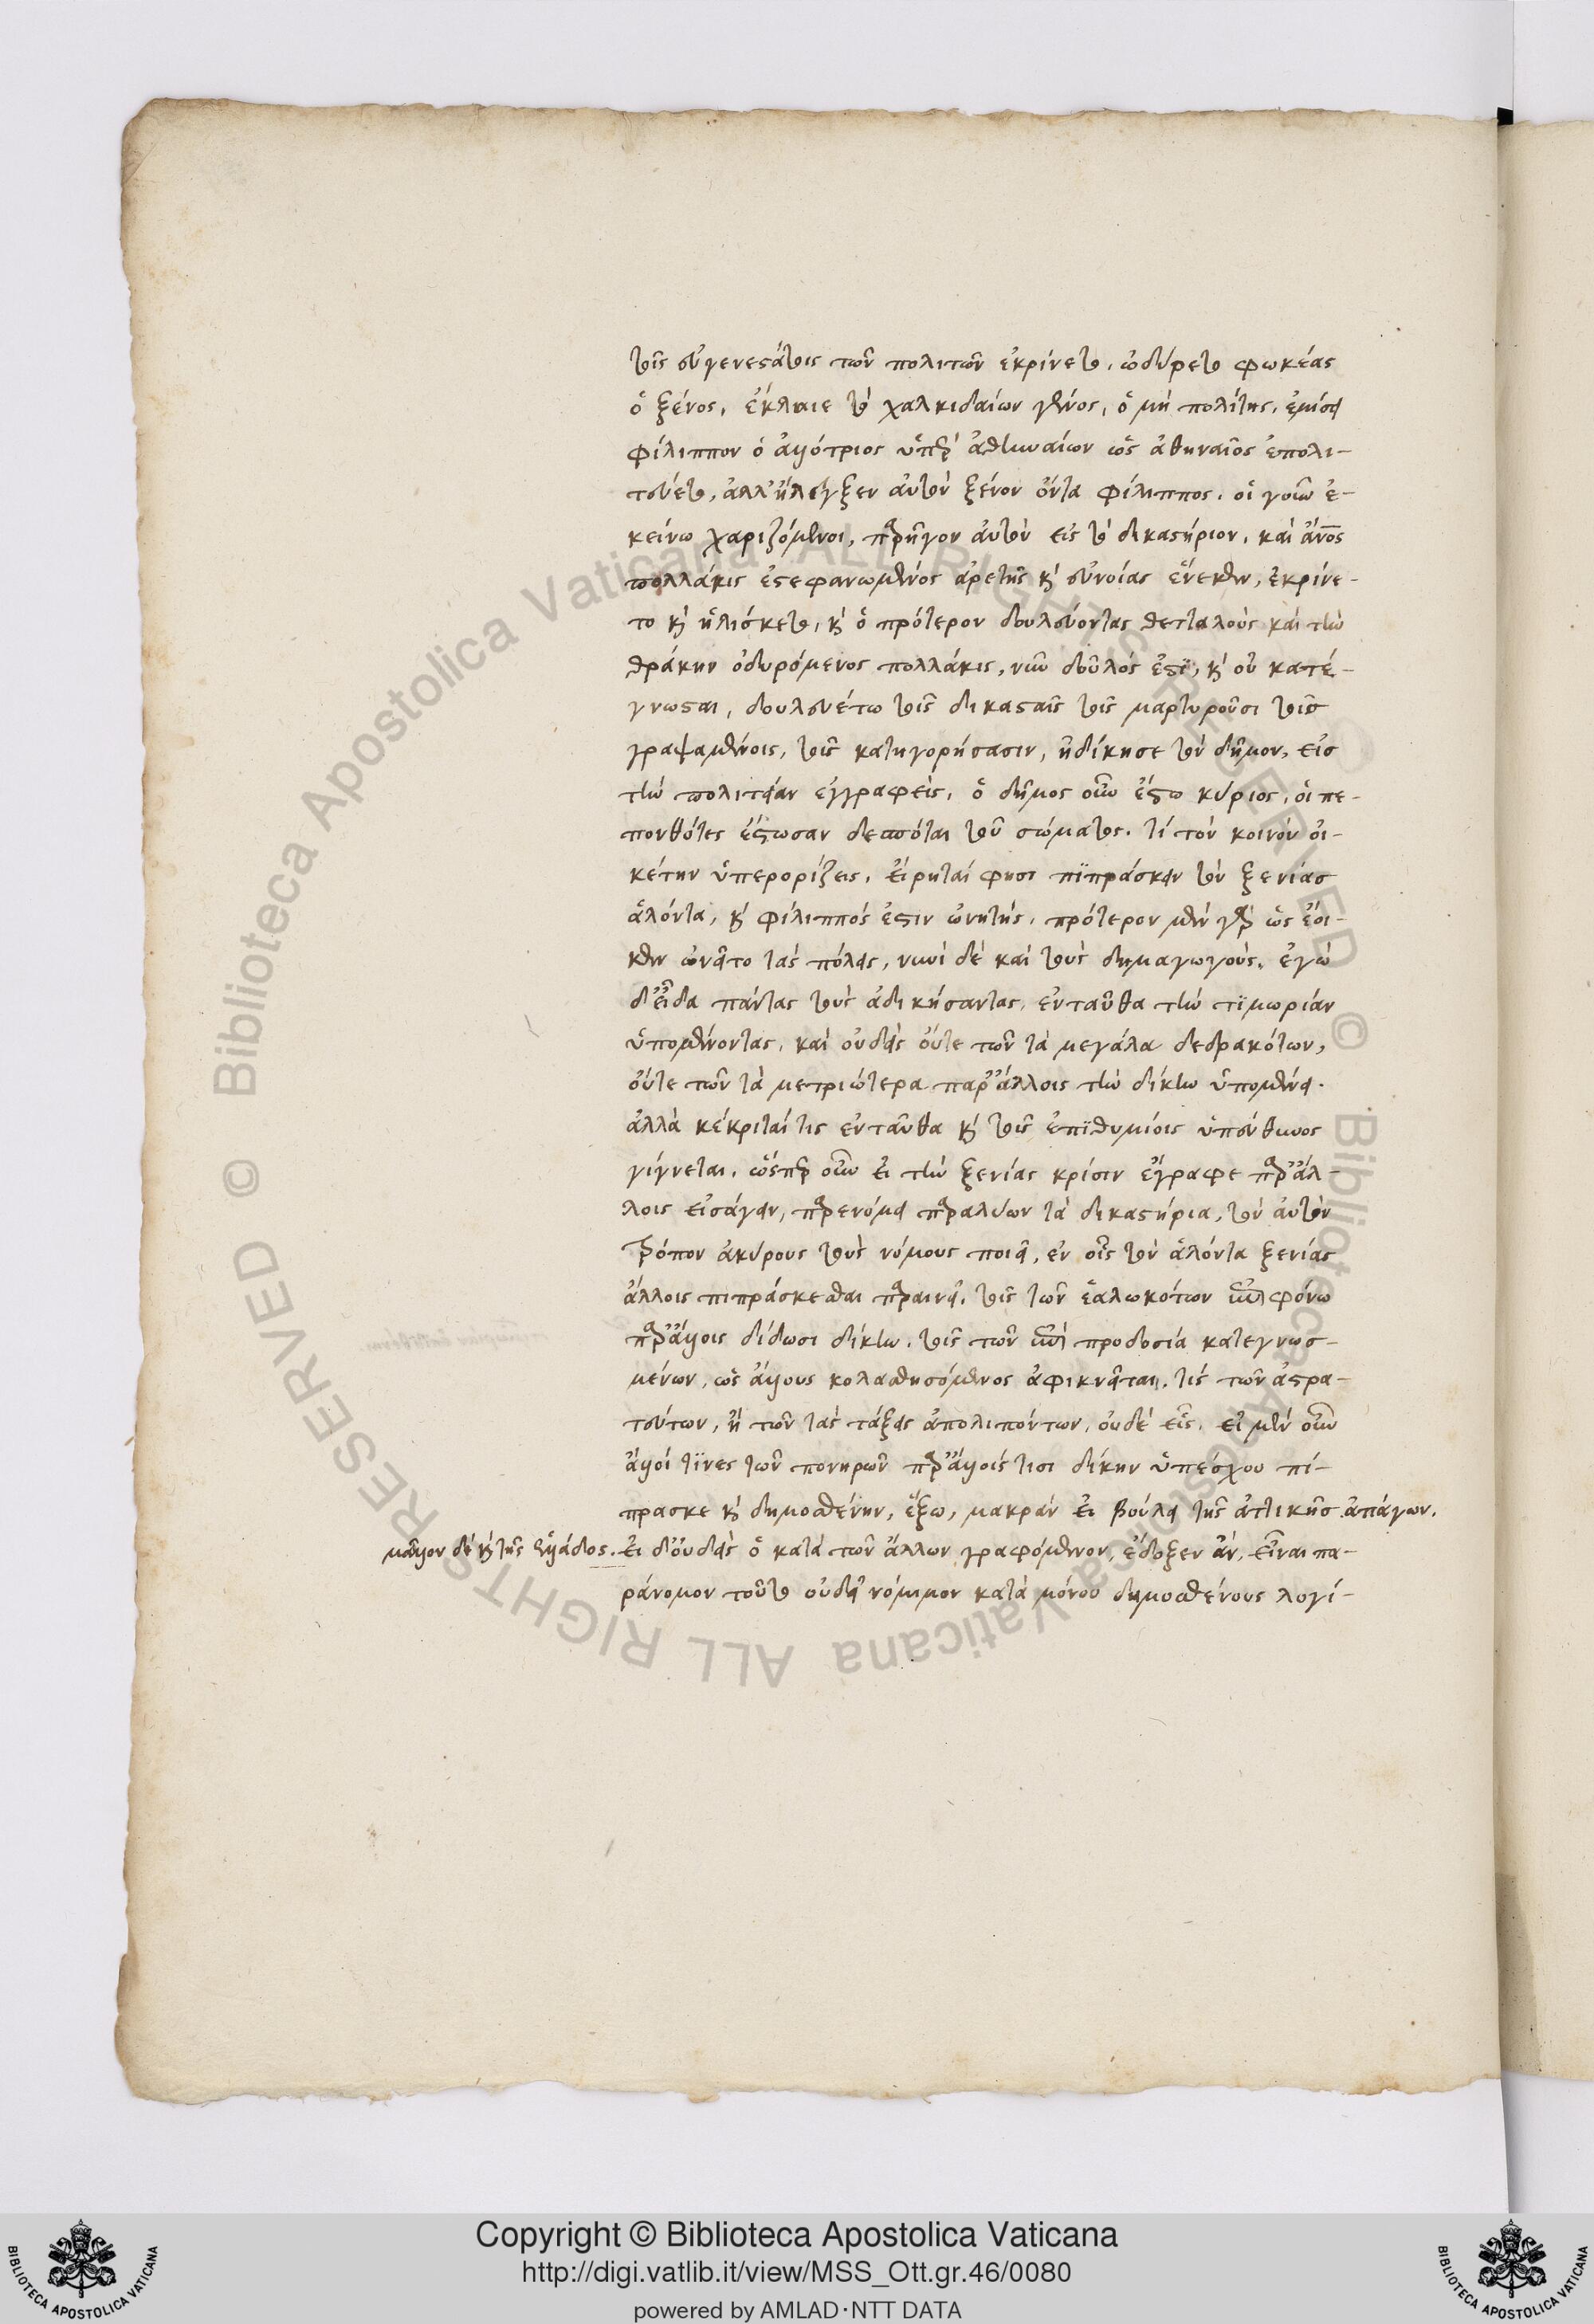 τοῖς εὐγενεστάτοις τῶν πολιτῶν ἐκρίνετο, ὠδύρετο φωκέας
ὁ ξένος, ἔκλαιε τὸ χαλκιδαίων γένος, ὁ μὴ πολίτης, ἐμίσει
φίλιππον ὁ ἀλλότριος ὑπὲρ ἀθηναίων ὡς ἀθηναῖος ἐπολι-
τεύετο, ἀλλ' ἤλεγξεν αὐτὸν ξένον ὄντα φίλιππος. οἱ γοῦν ἐ-
κείνω χαριζόμενοι, παρῆγον αὐτὸν εἰς τὸ δικαστήριον, καὶ ἄνος
πολλάκις ἐστεφανωμένος ἀρετῆς καὶ εὐνοίας ἕνεκεν, ἐκρίνε-
το καὶ ἡλίσκετο, καὶ ὁ πρότερον δουλεύοντας θετταλοὺς καὶ τὴν
θράκην ὀδυρόμενος πολλάκις, νῦν δοῦλός ἐστϊ, καὶ οὗ κατέ-
γνωσται, δουλευέτω τοῖς δικασταῖς τοῖς μαρτυροῦσι τοῖς
γραψαμένοις, τοῖς κατηγορήσασιν, ἠδίκησε τὸν δῆμον, εἰς
τὴν πολιτείαν ἐγγραφεὶς, ὁ δῆμος οὖν ἔστω κύριος, οἱ πε-
πονθότες ἔστωσαν δεσπόται τοῦ σώματος. τί τὸν κοινὸν οἰ-
κέτην ὑπερορίζεις, εἴρηταί φησι πϊπράσκειν τὸν ξενίας
ἁλόντα, καὶ φίλιππός ἐστιν ὠνητής, πρότερον μὲν γὰρ ὡς ἔοι-
κεν ὠνεῖτο τὰς πόλεις, νυνὶ δὲ καὶ τοὺς δημαγωγούς. ἐγὼ
δ' εἶδα πάντας τοὺς ἀδικήσαντας, ἐνταῦθα τὴν τϊμωρίαν
ὑπομένοντας, καὶ οὐδεὶς οὔτε τῶν τὰ μεγάλα δεδρακότων,
οὔτε τῶν τὰ μετριώτερα παρ' ἄλλοις τὴν δίκην ὑπομένει.
ἀλλὰ κέκριταί τις ἐνταῦθα καὶ τοῖς ἐπϊθυμίοις ὑπεύθυνος
γίγνεται. ὥσπερ οὖν εἰ τὴν ξενίας κρίσιν ἔγραφε παρ' ἄλ-
λοις εἰσάγειν, παρενόμει παραλύων τὰ δικαστήρια, τὸν αὐτὸν
τρόπον ἀκύρους τοὺς νόμους ποιεῖ, ἐν οἷς τὸν ἁλόντα ξενίας
ἄλλοις πιπράσκεσθαι παραινεῖ. τίς τῶν ἑαλωκότων ἐπὶ φόνω
παρ' ἄλλοις δίδωσι δίκην. τίς τῶν ἐπὶ προδοσία κατεγνωσ-
μένων, ὡς ἄλλους κολασθησόμενος ἀφικνεῖται, τίς τῶν ἀστρα-
τεύτων, ἢ τῶν τὰς τάξεις ἀπολιπόντων, οὐδὲ εἷς. εἰ μὲν οὖν
ἄλλοί τϊνες τῶν πονηρῶν παρ' ἄλλοις τισι δίκην ὑπέσχον πί-
πρασκε καὶ δημοσθένην, ἔξω, μακρὰν εἰ βούλει τῆς ἀττικῆς ἀπάγων.
μᾶλλον δὲ καὶ τῆς ἑλλάδος. εἰ δ' οὐδεὶς ὁ κατὰ τῶν ἄλλων γραφόμενον, ἔδοξεν ἂν, εἶναι πα-
ράνομον τοῦτο οὐδεὶ νόμιμον κατὰ μόνου δημοσθένους λογί-
Copyright © Biblioteca Apostolica Vaticana
http://digi.vatlib.it/view/MSS_Ott.gr.46/0080
powered by AMLAD·NTT DATA